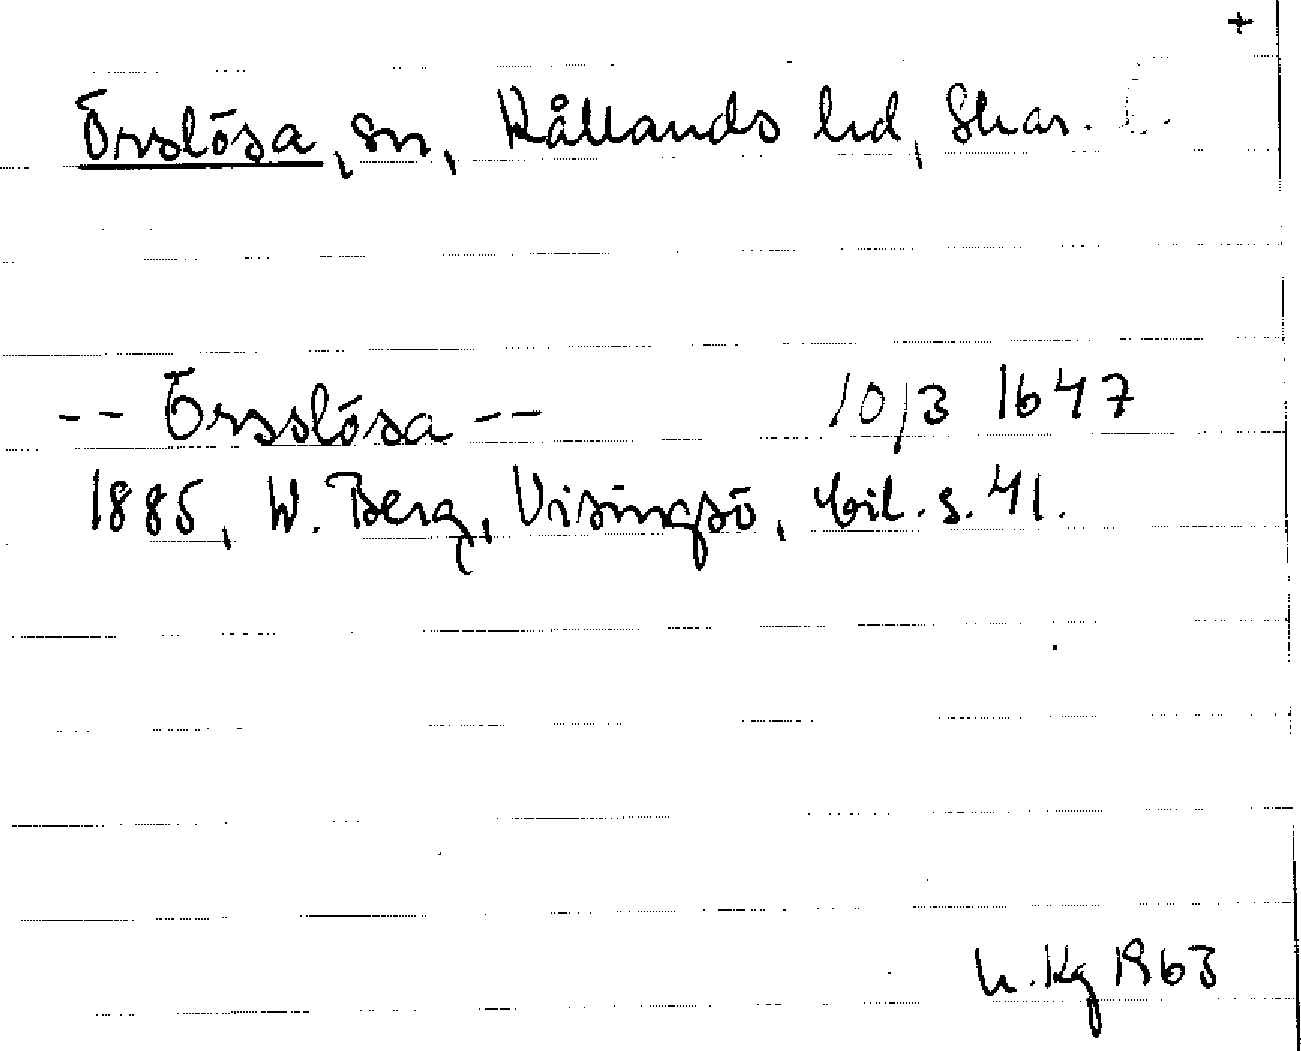 +
Örslösa, sn, Kållands hd, Skar.
-- Örsslösa -- 10/3 1647
1885, W. Berg, Visingsö, bil. s. 41.
h. Kg 1963